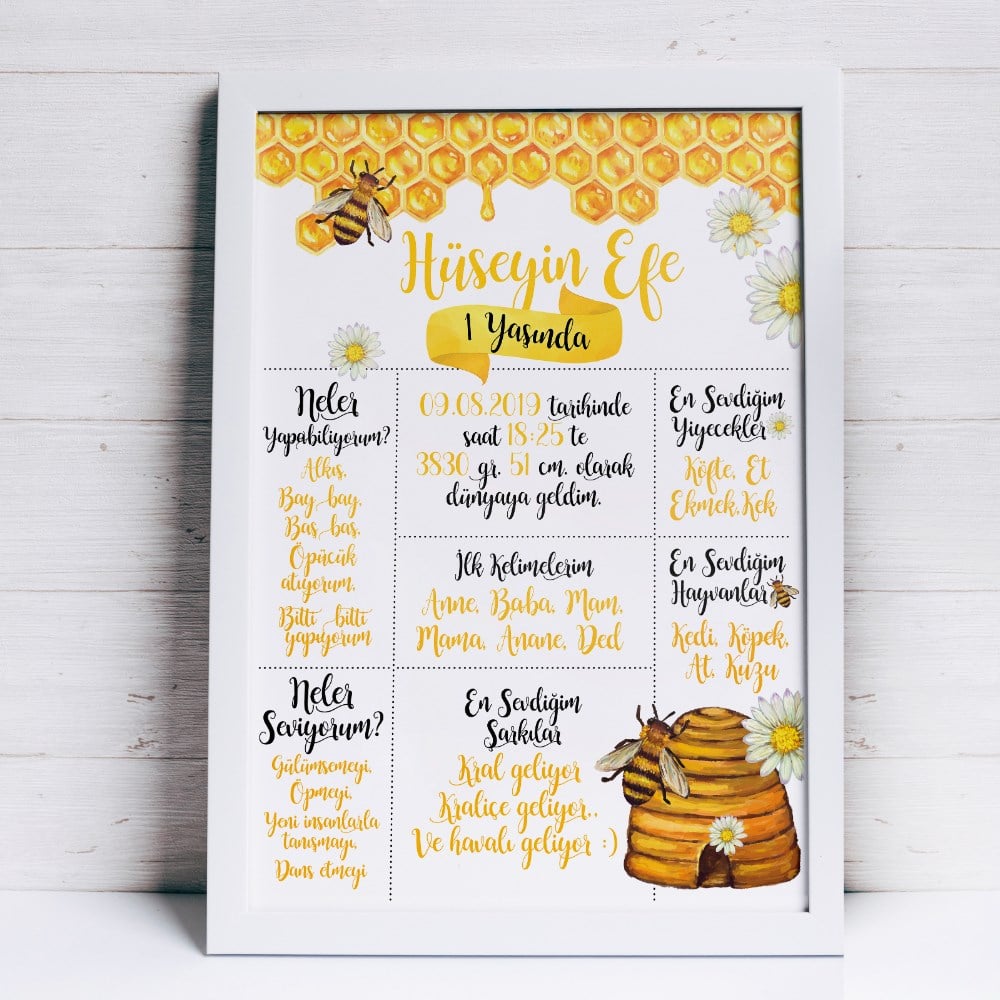 Hüseyin Efe
1 Yaşında
Neler
Yapabiliyorum?
Alkış,
Bay bay,
Baş baş,
Öpücük
atıyorum,
Bitti bitti
yapıyorum
09.08.2019 tarihinde
saat 18:25 te
3830 gr. 51 cm. olarak
dünyaya geldim.
En Sevdiğim
Yiyecekler
Köfte, Et
Ekmek, Kek
İlk Kelimelerim
Anne, Baba, Mam,
Mama, Anane, Ded
En Sevdiğim
Hayvanlar
Kedi, Köpek,
At, Kuzu
Neler
Seviyorum?
Gülümsemeyi,
Öpmeyi,
Yeni insanlarla
tanışmayı,
Dans etmeyi
En Sevdiğim
Şarkılar
Kral geliyor
Kraliçe geliyor..
Ve havalı geliyor :)